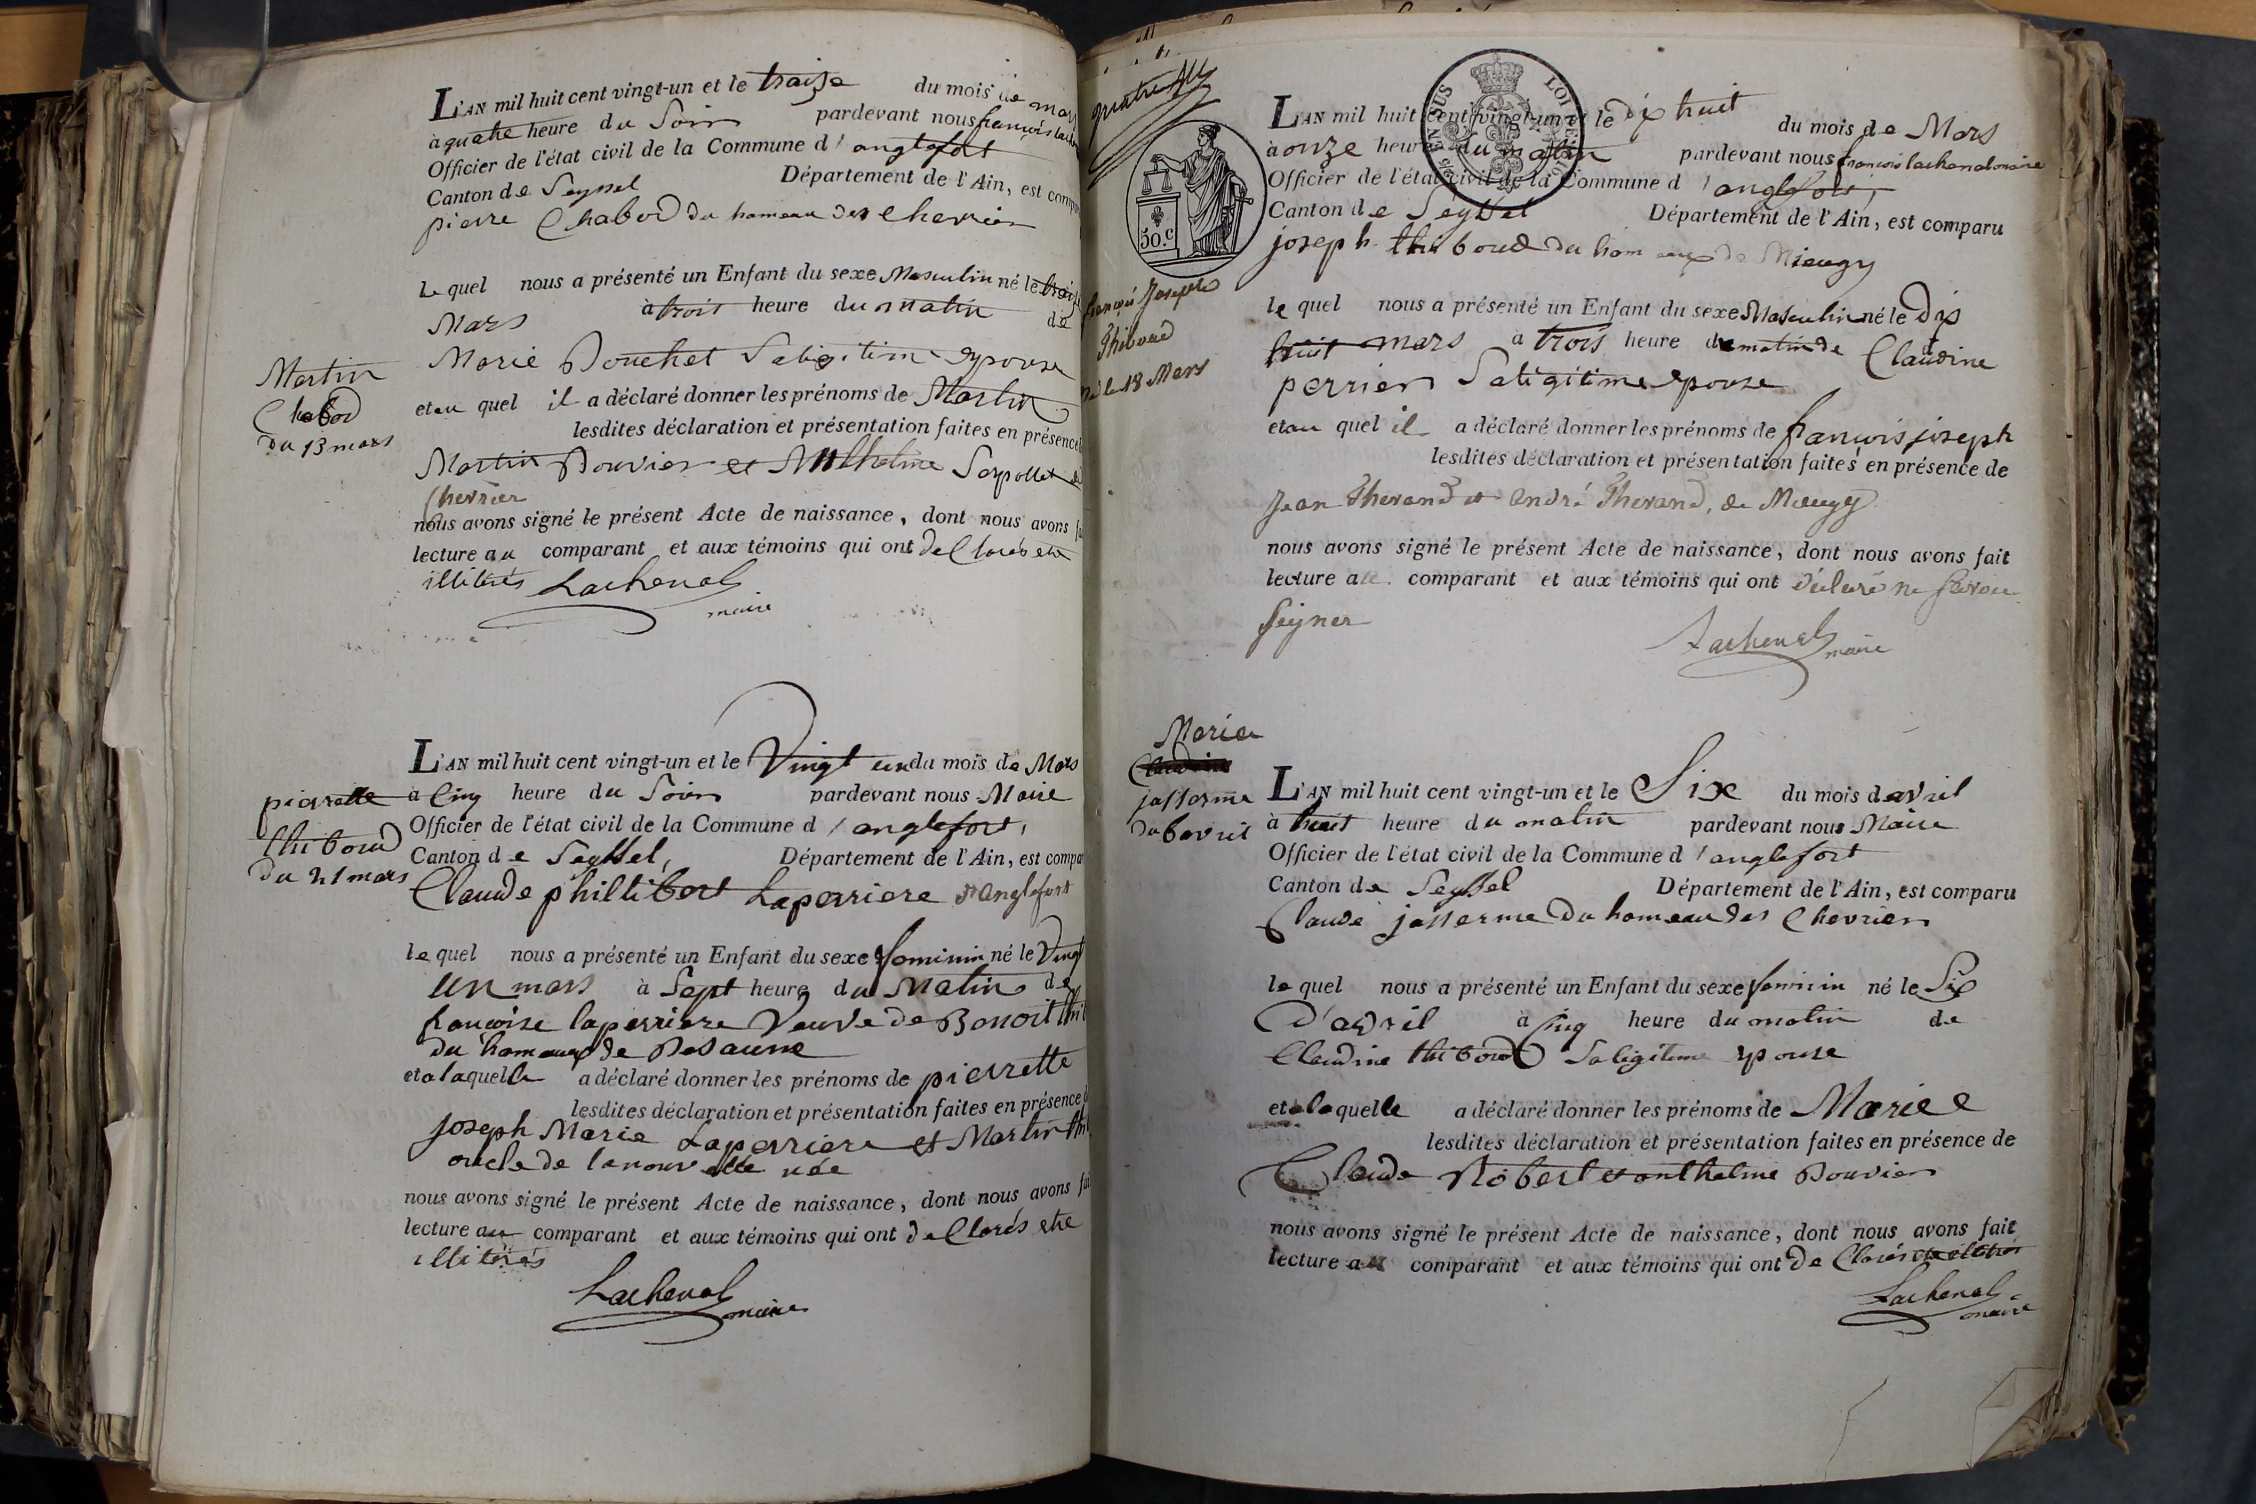 L'AN mil huit cent vingt-un et le traize du mois de mars
à quatre heure du Soir pardevant nous françois
Officier de l'état civil de la Commune d'anglefort
Canton de Seyssel Département de l'Ain, est
pierre Chabod du hameau des Chevrier
le quel nous a présenté un Enfant du sexe Masculin né le traize
Mars à trois heure du matin de
Marie Bouchet Sa ligitime epouse
et au quel il a déclaré donner les prénoms de Martin
lesdites déclaration et présentation faites en présence
Martin Bouvier et Serpollet
Chevrier
nous avons signé le présent Acte de naissance, dont nous avons
lecture au comparant et aux témoins qui ont declarés etre
illitérés Lachenal
maire
Martin
Chabod
du 13 mars
L'AN mil huit cent vingt-un et le Vingt un du mois de Mars
à Cinq heure du Soir pardevant nous Maire
Officier de l'état civil de la Commune d'anglefort,
Canton de Seyssel, Département de l'Ain, est
Claude philliBert Laperriere d'anglefort
le quel nous a présenté un Enfant du sexe feminin né le Vingt
un mars à Sept heure du Matin de
françoise laperriere Veuve de Benoit
du hameaux de
et a laquelle a déclaré donner les prénoms de pierrette
lesdites déclaration et présentation faites en présence
joseph Marie Laperriere et Martin
oncle de la nouvelle née
nous avons signé le présent Acte de naissance, dont nous avons
lecture au comparant et aux témoins qui ont declarés etre
illitérés
Lachenal
maire
pierrette
thiboud
du 21 mars
L'AN mil huit cent vingt-un et le dix huit du mois de Mars
à onze heure du matin pardevant nous françois lachenal maire
Officier de l'état civil de la Commune d'anglefort,
Canton de Seyssel Département de l'Ain, est comparu
joseph thiboud du hameaux de Mieugy
le quel nous a présenté un Enfant du sexe Masculin né le dix
huit mars à trois heure du matin de Claudine
perrier Sa ligitime epouse
et au quel il a déclaré donner les prénoms de françois joseph
lesdites déclaration et présentation faites en présence de
Jean Thevand et andré Thevand, de Mieugy
nous avons signé le présent Acte de naissance, dont nous avons fait
lecture au comparant et aux témoins qui ont déclaré ne savoir
signer
Lachenal maire
50.c
françois Joseph
Thiboud
né le 18 Mars
L'AN mil huit cent vingt-un et le Six du mois davril
à huit heure du matin pardevant nous Maire
Officier de l'état civil de la Commune d'anglefort
Canton de Seyssel Département de l'Ain, est comparu
Claude jasserme du hameau des Chevrier
le quel nous a présenté un Enfant du sexe feminin né le Six
D'avril à Cinq heure du matin de
Claudine thiboud Sa ligitime epouse
et a laquelle a déclaré donner les prénoms de Mariee
lesdites déclaration et présentation faites en présence de
Claude Robert et anthelme Bouvier
nous avons signé le présent Acte de naissance, dont nous avons fait
lecture au comparant et aux témoins qui ont de Clarés etre illitérés
Lachenal
maire
Marie
jasserme
du 6 avril